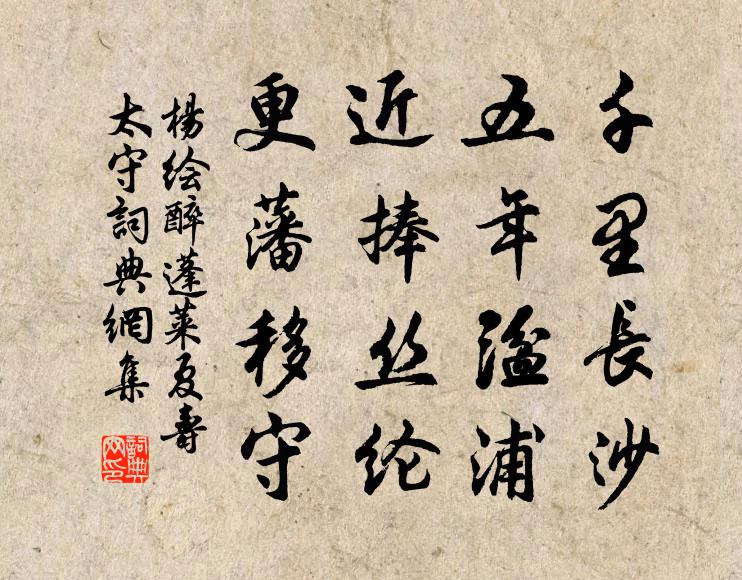 千里長沙
五年湓浦
近捧丝纶
更藩移守
楊绘醉蓬莱夏壽
太守詞典網集
詞典网印